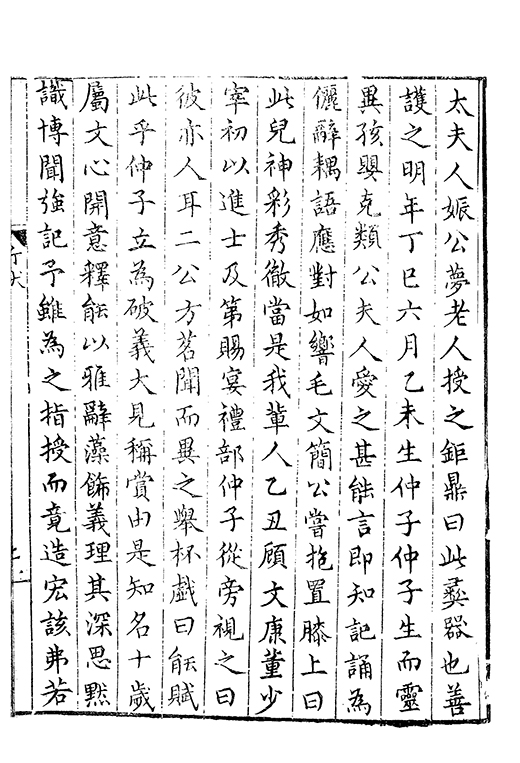 太夫人娠公夢老人授之鉅鼎曰此彞器也善
護之明年丁巳六月乙未生仲子仲子生而靈
異孩嬰克類公夫人愛之甚能言即知記誦為
儷辭耦語應對如響毛文簡公嘗抱置膝上曰
此兒神彩秀徹當是我輩人乙丑顧文康董少
宰初以進士及第賜宴禮部仲子從旁視之曰
彼亦人耳二公方茗聞而異之舉杯戯曰能賦
此乎仲子立為破義大見稱賞由是知名十歲
屬文心開意釋能以雅辭藻飾義理其深思黙
識博聞強記予雖為之指授而竟造宏該弗若